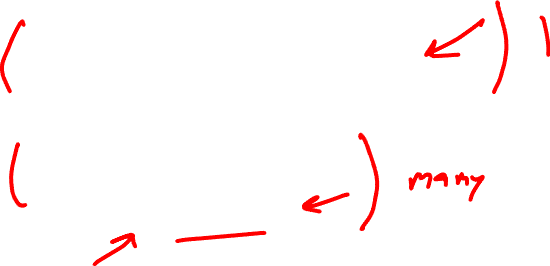 ( ) 1
( ) many